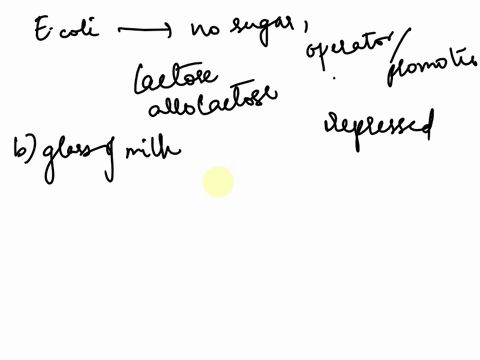 E. coli → no sugar,
operator/
promotis
Lactose
allolactose
repressed
b) glass of milk